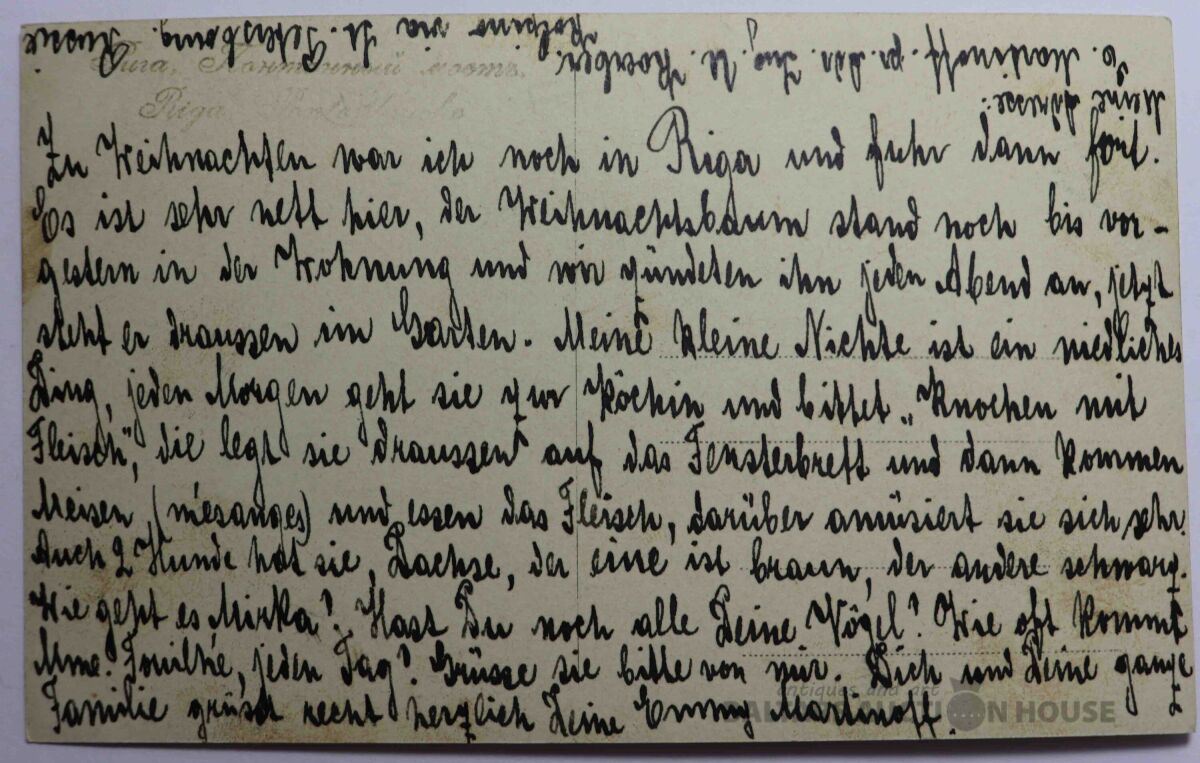 Meine Adresse:
E. Martinoff. pr. Adr. Ing. N.
Kolpino via St. Petersbourg. Russie.
Рига, Понтонный мостъ.
Riga
Zu Weihnachten war ich noch in Riga und fuhr dann fort.
Es ist sehr nett hier, der Weihnachtsbaum stand noch bis vor-
gestern in der Wohnung und wir zündeten ihn jeden Abend an, jetzt
steht er draussen im Garten. Meine kleine Nichte ist ein niedliches
Ding, jeden Morgen geht sie zur Köchin und bittet „Knochen mit
Fleisch“, die legt sie draussen auf das Fensterbrett und dann kommen
Meisen (mésanges) und essen das Fleisch, darüber amüsiert sie sich sehr.
Auch 2 Hunde hat sie, Dachse, der eine ist braun, der andere schwarz.
Wie geht es Mirka? Hast Du noch alle Deine Vögel? Wie oft kommt
Mme. jeden Tag? Grüsse sie bitte von mir. Dich und Deine ganze
Familie grüsst recht herzlich Deine Emmy Martinoff.
antiques and art
AUCTION HOUSE